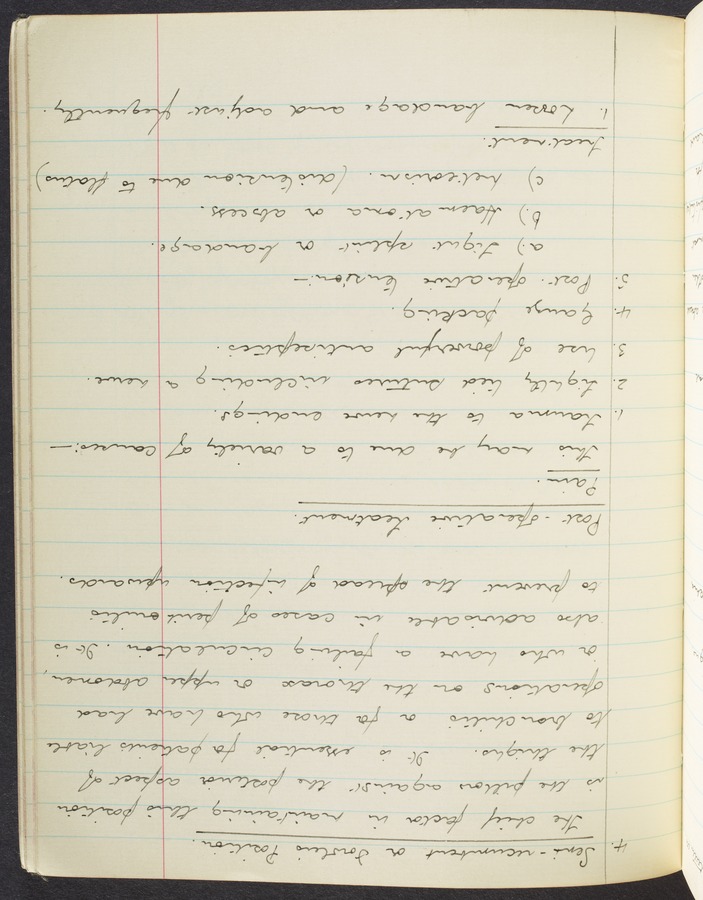 4. Semi-recumbent or Fowler's Position.
The chief factor in maintaining this position
is the pillows against the posterior aspect of
the thighs. It is essential for patients liable
to bronchitis or for those who have had
operations on the thorax or upper abdomen,
or who have a failing circulation. It is
also advisable in cases of peritonitis
to prevent the spread of infection upwards.
Post-operative treatment.
Pain.
This may be due to a variety of causes:—
1. Trauma to the nerve endings.
2. Tightly tied sutures including a nerve.
3. Use of powerful antiseptics.
4. Gauze packing.
5. Post-operative tension:—
a) Tight splint or bandage.
b.) Haematoma or abscess.
c) Meteorism. (distension due to flatus)
Treatment.
1. Loosen bandage and adjust frequently.